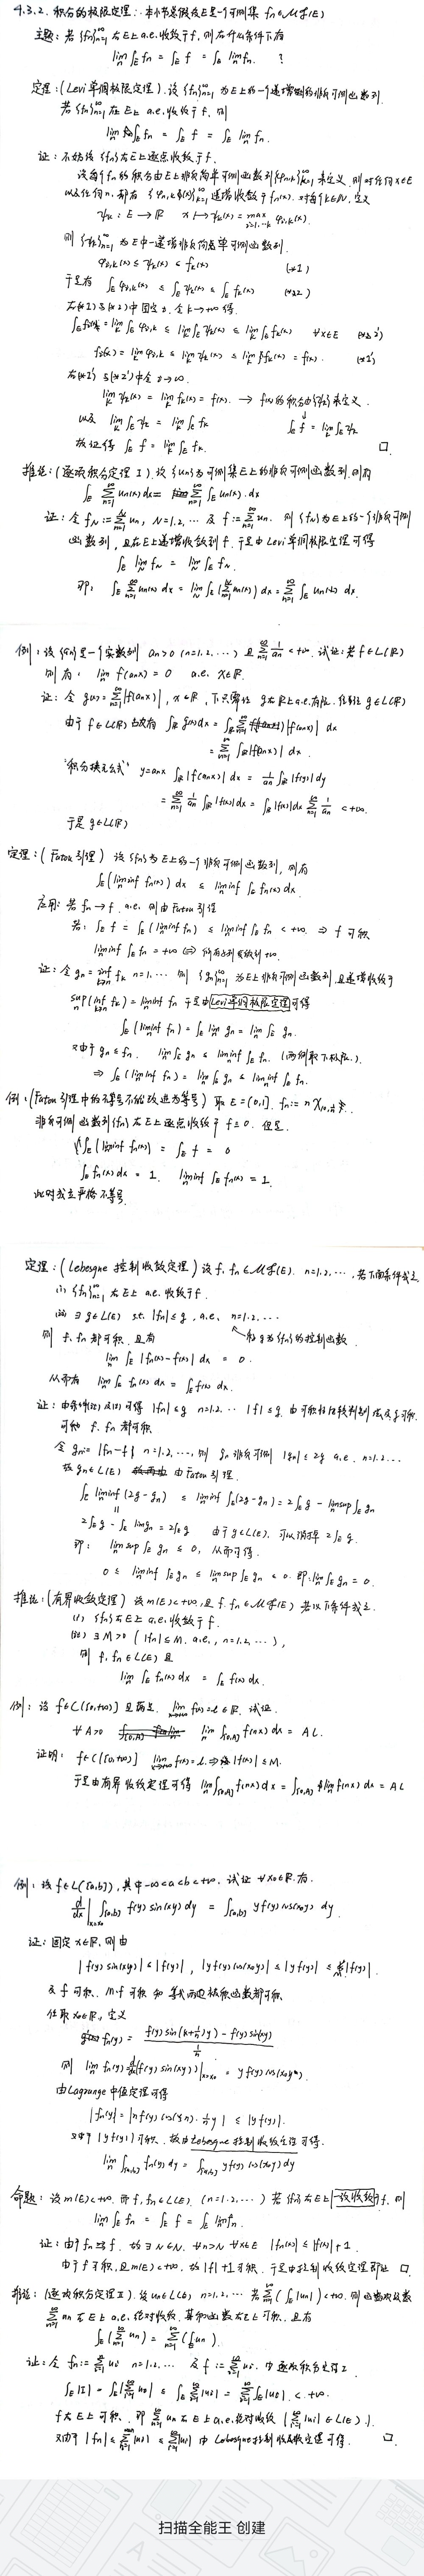 4.3.2. 积分的极限定理: 本小节总假设E是一个可测集 fn∈MF(E)
主题: 若{fn}∞n=1在E上a.e.收敛于f, 则在什么条件下有
lim n ∫E fn = ∫E f = ∫E lim n fn. ?
定理: (Levi单调极限定理). 设{fn}∞n=1为E上的一个递增的非负可测函数列.
若{fn}∞n=1在E上a.e.收敛于f, 则
lim n ∫E fn = ∫E f = ∫E lim n fn.
证: 不妨设{fn}在E上逐点收敛于f.
设每个fn的积分由E上非负简单可测函数列{φn,k}∞k=1来定义. 则对任何x∈E
以及任何n, 都有{φn,k(x)}∞k=1递增收敛于fn(x). 对每个k∈N, 定义
ψk: E→R x↦ψk(x)=max i=1,…k φi,k(x).
则{ψk}∞k=1为E中一递增非负简单可测函数列.
φi,k(x) ≤ ψk(x) ≤ fk(x) (*1)
于是有 ∫E φi,k ≤ ∫E ψk(x) ≤ ∫E fk(x) (*2)
在(*1)与(*2)中固定i, 令k→∞得.
lim k ψk(x) = lim k fk(x) = f(x). → f(x)的积分由{ψk}来定义.
以及 lim k ∫E ψk = lim k ∫E fk ∫E f = lim k ∫E ψk
故证得 ∫E f = lim k ∫E fk. □
推论: (逐项积分定理 I). 设{un}为可测集E上的非负可测函数列. 则有
∫E ∞∑n=1 un(x) dx = ∞∑n=1 ∫E un(x). dx
证: 令fN := N∑n=1 un, N=1,2,… 及 f := ∞∑n=1 un. 则{fN}为E上的一个非负可测
函数列, 且在E上递增收敛到f. 于是由Levi单调极限定理可得
∫E lim N fN = lim N ∫E fN.
即: ∫E ∞∑n=1 un(x) dx = lim N ∫E (N∑n=1 un(x)) dx = ∞∑n=1 ∫E un(x) dx.
例: 设{an}是一个实数列 an>0 (n=1,2,…) 且 ∞∑n=1 1/an < +∞. 试证: 若f∈L(R)
则有: lim n f(anx) = 0 a.e. x∈R.
证: 令g(x) = ∞∑n=1 |f(anx)|, x∈R, 下只需证g在R上a.e.有限. 往证g∈L(R)
由于f∈L(R) 故有 ∫R g(x)dx = ∫R ∞∑n=1 |f(anx)| dx
= ∞∑n=1 ∫R |f(anx)| dx.
"积分换元公式" y=anx ∫R |f(anx)| dx = 1/an ∫R |f(y)| dy
= ∞∑n=1 1/an ∫R |f(x)| dx = ∫R |f(x)| dx ∞∑n=1 1/an < +∞.
于是g∈L(R)
定理: (Fatou引理) 设{fn}为E上的一个非负可测函数列, 则有
∫E (lim inf n fn(x)) dx ≤ lim inf n ∫E fn(x) dx.
应用: 若fn→f a.e. 则由Fatou引理
若: ∫E f = ∫E (lim inf n fn) ≤ lim inf n ∫E fn < +∞. ⇒ f可积
证: 令gn = inf k≥n fk n=1,… 则{gn}∞n=1为E上非负可测函数列, 且递增收敛于
sup n (inf k≥n fk) = lim inf n fn 于是由Levi单调极限定理可得
∫E (lim inf n fn) = ∫E lim n gn = lim n ∫E gn.
又由于gn ≤ fn. lim n ∫E gn ≤ lim inf n ∫E fn. (两侧取下极限.)
⇒ ∫E (lim inf n fn) = lim n ∫E gn ≤ lim inf n ∫E fn.
例: (Fatou引理中的不等号不能改进为等号) 取E=(0,1]. fn := nχ(0,1/n).
非负可测函数列{fn}在E上逐点收敛于f≡0. 但是.
∫E (lim inf n fn(x)) = ∫E f = 0
∫E fn(x) dx = 1. lim inf n ∫E fn(x) = 1.
此时成立严格不等号.
定理: (Lebesgue控制收敛定理) 设f, fn∈MF(E). n=1,2,…, 若下面条件成立
(i) {fn}∞n=1在E上a.e.收敛于f.
(ii) ∃g∈L(E) s.t. |fn|≤g, a.e. n=1,2,…
称g为{fn}的控制函数
则 f, fn都可积, 且有
lim n ∫E |fn(x)-f(x)| dx = 0.
从而有 lim n ∫E fn(x) dx = ∫E f(x) dx.
证: 由条件(i)及(ii)可得 |fn|≤g n=1,2,… |f|≤g. 由可积性比较判别法及g可积.
可知 f, fn都可积
令gn := |fn-f| n=1,2,…, 则gn非负可测 |gn|≤2g a.e. n=1,2…
故gn∈L(E) 由Fatou引理.
∫E lim inf n (2g-gn) ≤ lim inf n ∫E (2g-gn) = 2∫E g - lim sup n ∫E gn
2∫E g - ∫E lim n gn = 2∫E g 由于g∈L(E), 可以消掉2∫E g.
即: lim sup n ∫E gn ≤ 0, 从而可得.
0 ≤ lim inf n ∫E gn ≤ lim sup n ∫E gn ≤ 0. 即: lim n ∫E gn = 0.
推论: (有界收敛定理) 设m(E)<+∞, 且f, fn∈MF(E) 若以下条件成立.
(i) {fn}在E上a.e.收敛于f.
(ii) ∃M>0 (|fn|≤M. a.e., n=1,2,…),
则 f, fn∈L(E) 且
lim n ∫E fn(x) dx = ∫E f(x) dx.
例: 设f∈C([0,+∞)) 且满足. lim x→∞ f(x)=L∈R. 试证
∀A>0 lim n ∫[0,A] f(nx) dx = AL.
证明: f∈C([0,+∞)) lim x→+∞ f(x)=L ⇒ |f(x)|≤M.
于是由有界收敛定理可得 lim n ∫[0,A] f(nx) dx = ∫[0,A] lim n f(nx) dx = AL
例: 设f∈L([a,b]), 其中-∞<a<b<+∞. 试证 ∀x0∈R. 有.
d/dx |x=x0 ∫[a,b] f(y) sin(xy) dy = ∫[a,b] y f(y) cos(x0y) dy
证: 固定x∈R, 则由
及f可积. 知等式两边被积函数都可积.
任取x0∈R, 定义
由Lagrange中值定理可得
又由于|y f(y)|可积. 故由Lebesgue控制收敛定理可得.
lim n ∫[a,b] fn(y) dy = ∫[a,b] y f(y) cos(x0y) dy
命题: 设m(E)<+∞. 而f, fn∈L(E). (n=1,2,…) 若{fn}在E上一致收敛于f, 则
lim n ∫E fn = ∫E f = ∫E lim n fn.
证: 由于fn⇉f. 故∃N∈N. ∀n>N ∀x∈E |fn(x)|≤|f(x)|+1.
由于f可积, 且m(E)<+∞, 故|f|+1可积. 于是由控制收敛定理即证 □
推论: (逐项积分定理II). 设un∈L(E), n=1,2,… 若∞∑n=1 (∫E |un|)<+∞. 则函数项级数
∞∑n=1 un在E上a.e.绝对收敛. 其和函数在E上可积. 且有
∫E (∞∑n=1 un) = ∞∑n=1 (∫E un).
证: 令fn := n∑i=1 ui n=1,2,… 及 f := ∞∑i=1 ui. 由逐项积分定理I
f在E上可积. 即 ∞∑n=1 un在E上a.e.绝对收敛 (∞∑i=1 |ui|∈L(E)).
又由于|fn| ≤ n∑i=1 |ui| ≤ ∞∑i=1 |ui| 由Lebesgue控制收敛定理可得. □
扫描全能王 创建